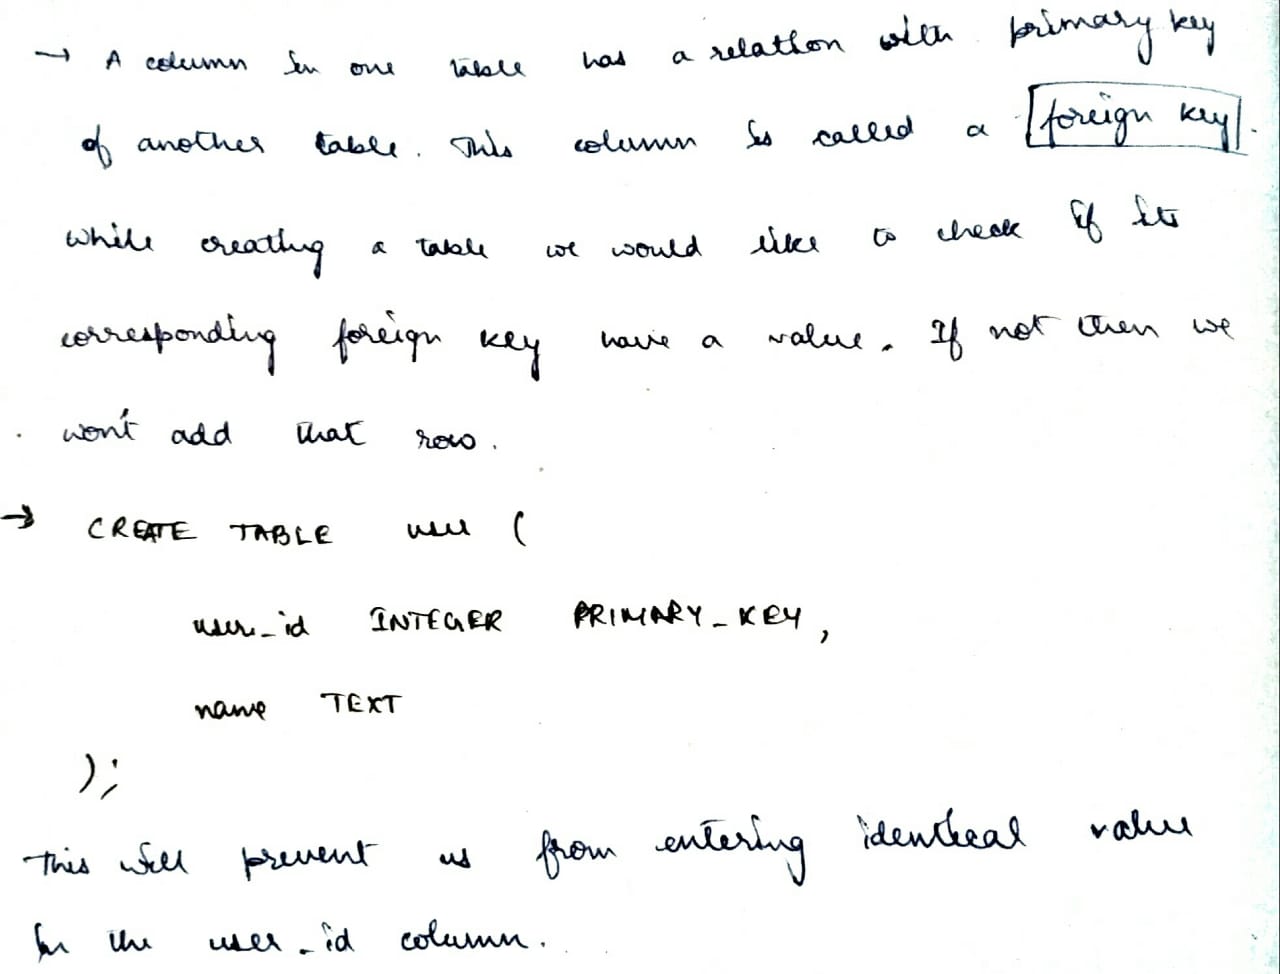 → A column in one table has a relation with primary key
of another table. This column is called a foreign key.
while creating a table we would like to check if its
corresponding foreign key have a value. If not then we
won't add that row.
→ CREATE TABLE user (
user_id INTEGER PRIMARY_KEY,
name TEXT
);
This will prevent us from entering identical value
in the user_id column.